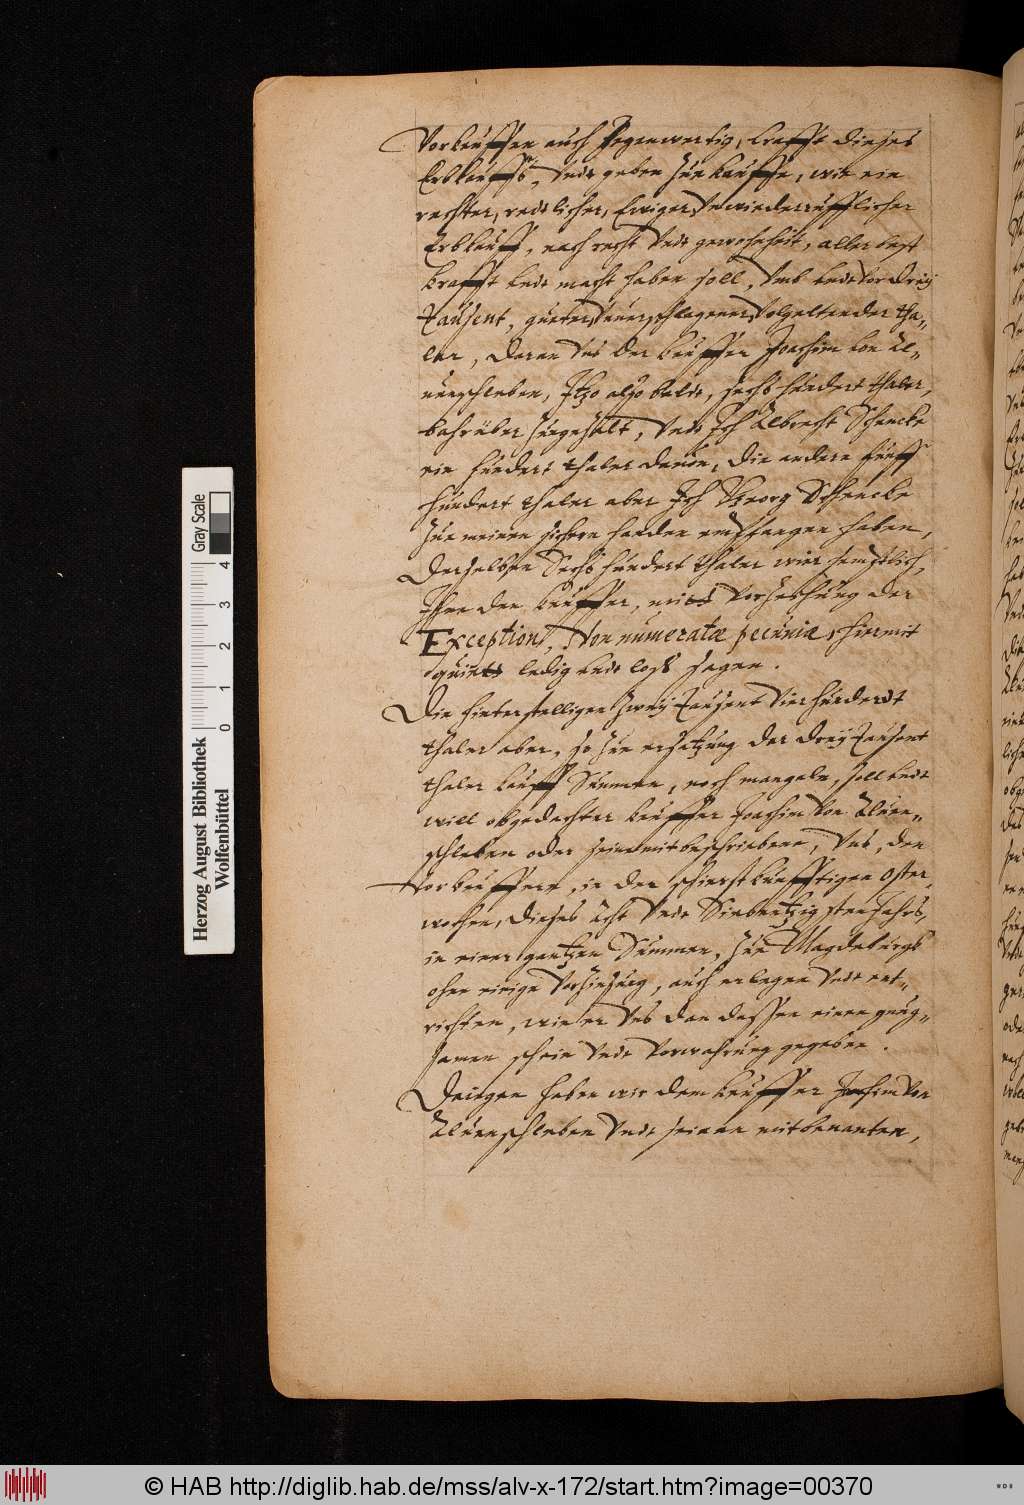 Vorkeuffen auch kegenwertig, krafft dieses
Erbkauffs, Vndt geben zue kauffe, wie ein
rechter, redtlicher, Ewiger, Vnwiederrufflicher
Erbkauff, nach recht Vndt gewohnheit, aller best
krafft Vndt macht haben soll, Vmb Vndt vor dreÿ
Tausent, gueter, Vnuerschlagener, Volgeltender tha„
ler, daran Vns der keuffer Joachim von Al„
uenschleben, Itzo also baldt, sechs hundert thaler,
bahr über zuegezalt, Vndt Ich Albrecht Schencke
ein hundert thaler dauon, die andern fünff
hundert thaler aber Ich Georg Schencke
zue meinen sichern handen empfangen haben,
Derselben Sechs hundert thaler wier semptlich,
Ihne den keuffer, mit Vorzeihung der
Exception, Non numeratæ pecuniæ, hiermit
quit ledig Vndt loss sagen.
Die hinterstelligen zweÿ Tausent Vier hundert
thaler aber, so zue ersetzung der dreÿ Tausent
thaler kauff Summen, noch mangeln, soll Vndt
will obgedachter keuffer Joachim von Aluen„
schleben oder seine mitbeschriebene, Vns, den
Vorkeuffern, in der schierstkunfftigen Oster„
wochen, dieses Acht Vndt Siebentzigsten Jahrs,
in einer gantzen Summen, zue Magdeburgk
ohne einige Vorhinderung, auch erlegen Vndt ent„
richten, wie er Vns dan dessen einen gnug„
samen schein Vndt Vorwahrung gegeben.
Daiegen haben wir dem keuffer Jochim Von
Aluenschleben Vndt seinen mitbenanten,
Herzog August Bibliothek
Wolfenbüttel
0 1 2 3 4
Gray Scale
© HAB http://diglib.hab.de/mss/alv-x-172/start.htm?image=00370